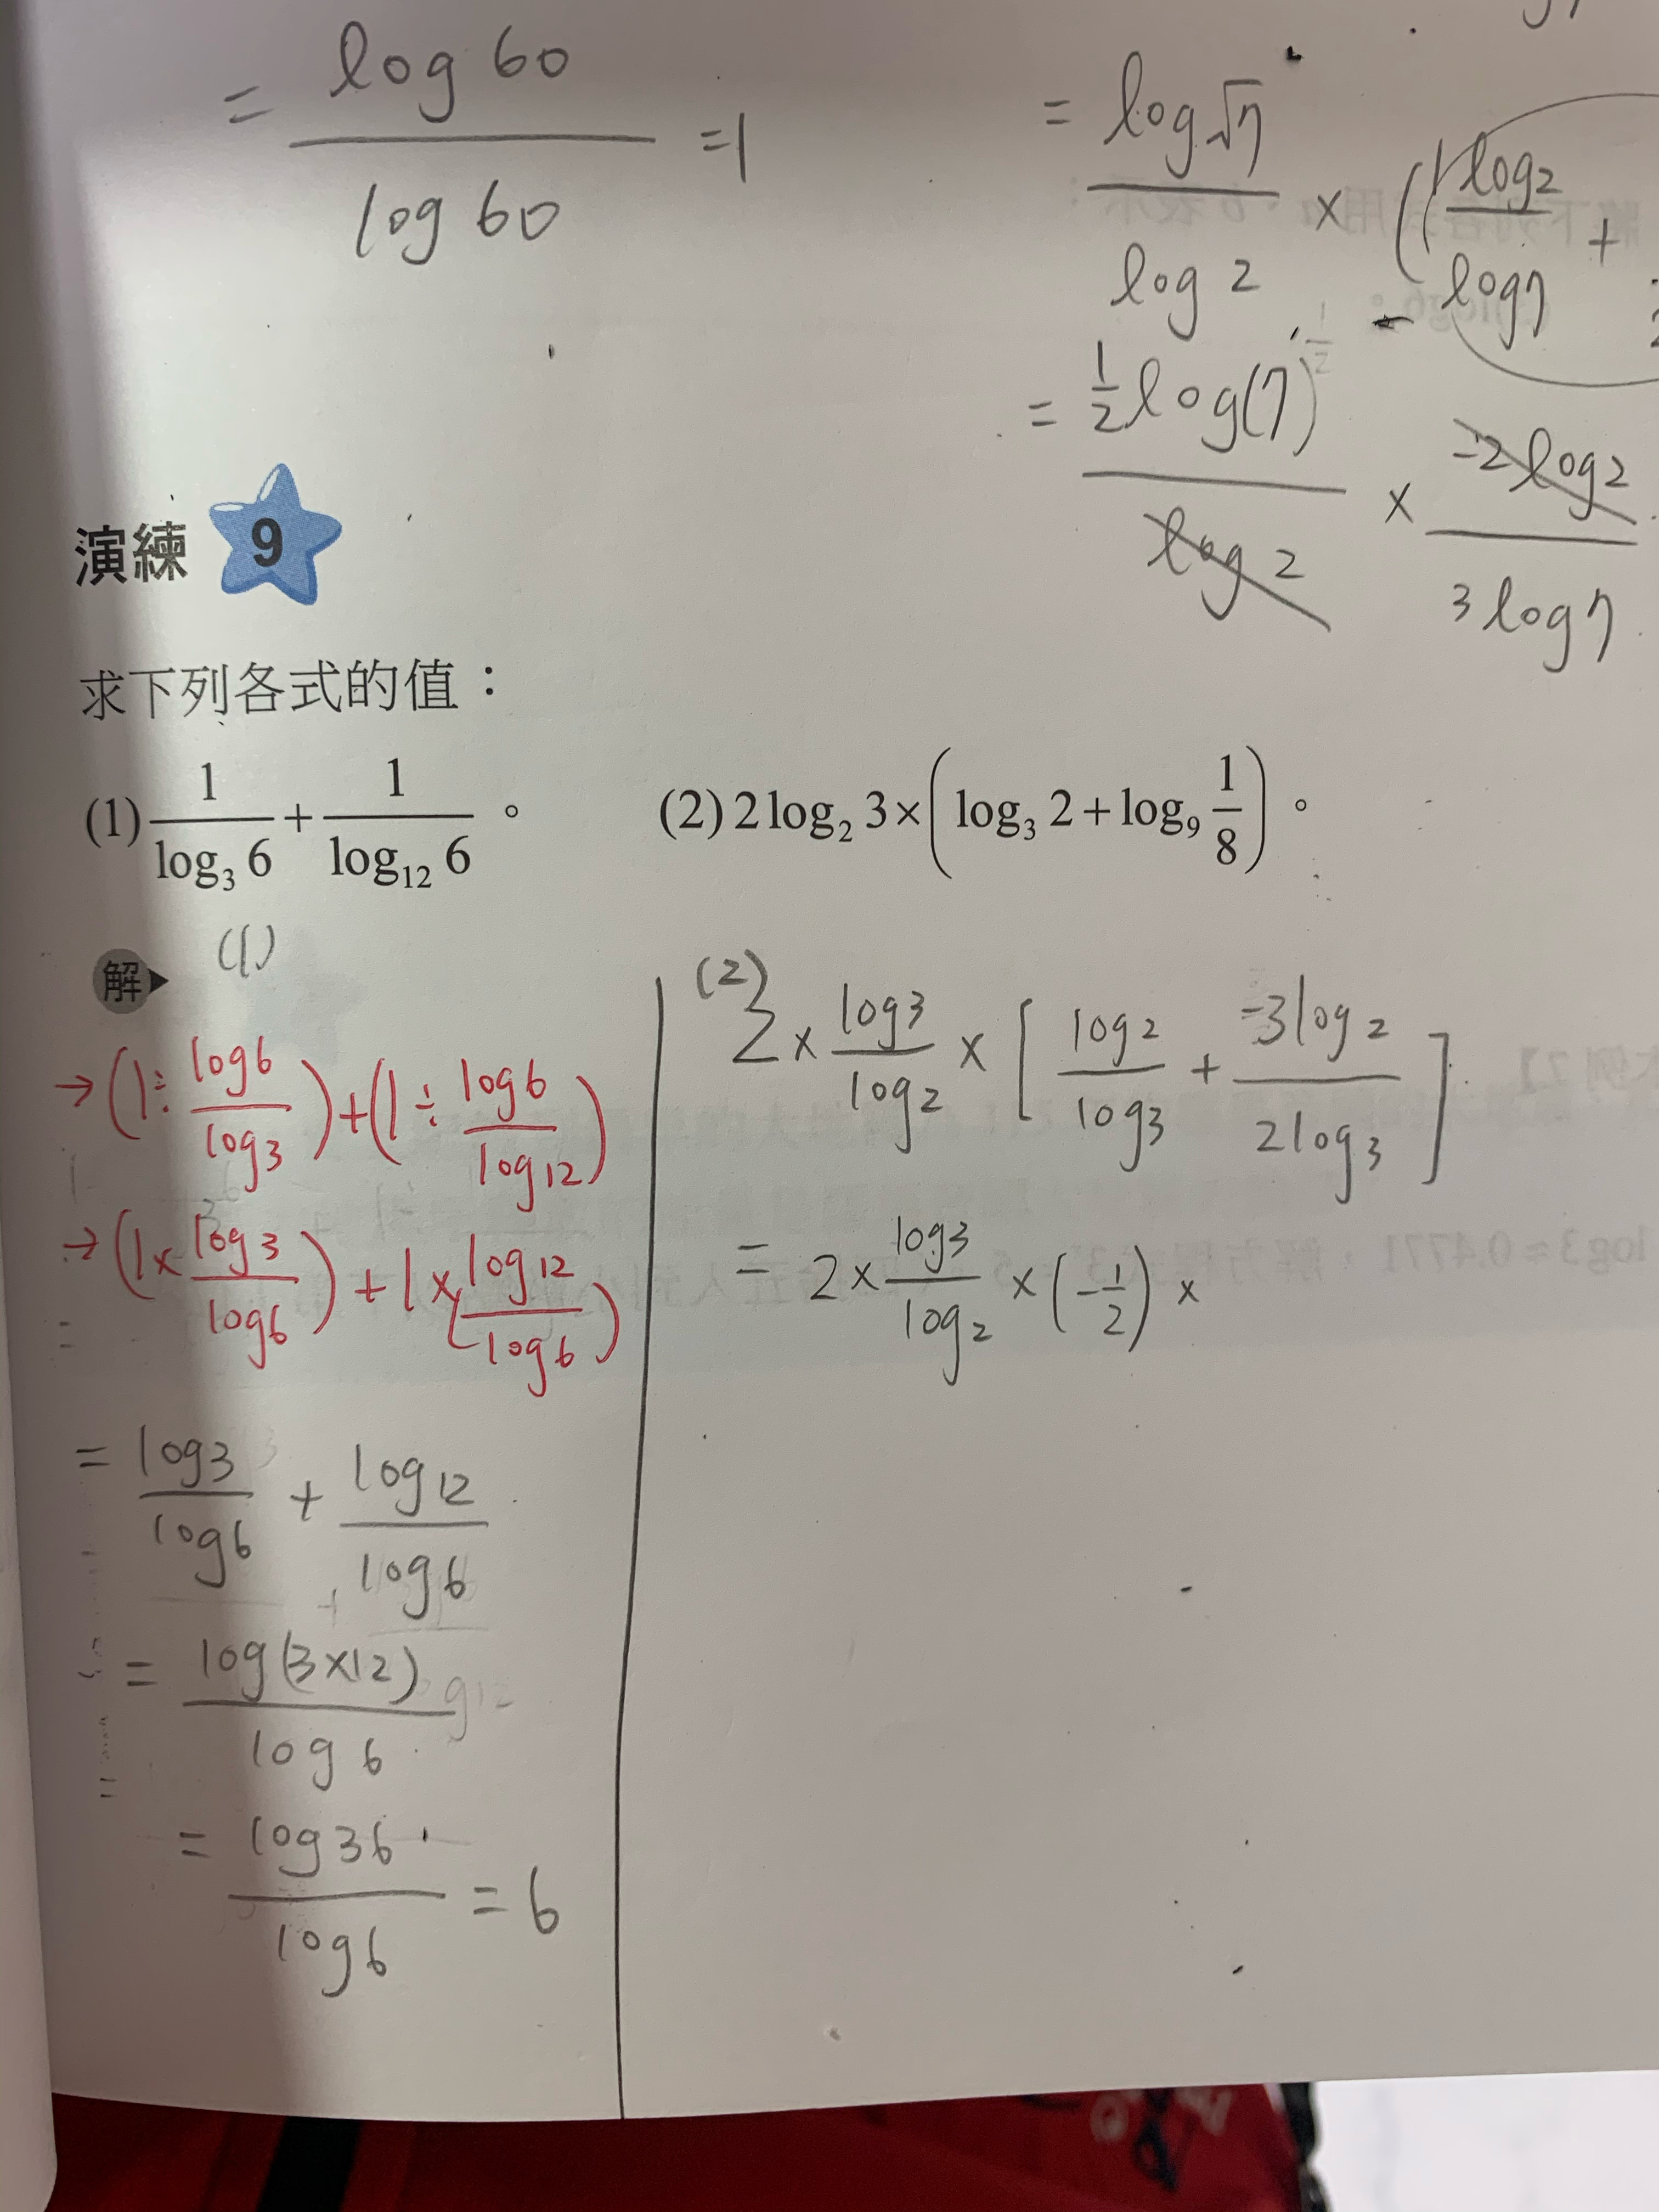 = log 60 / log 60 = 1
= log √7 / log 2 × ((log 2 / log 7 +
= 1/2 log(7) / log 2 × -2 log 2 / 3 log 7
演練 9
求下列各式的值：
(1) 1/log₃ 6 + 1/log₁₂ 6 。
(2) 2 log₂ 3 × (log₃ 2 + log₉ 1/8) 。
解
(1)
→ (1 ÷ log 6 / log 3) + (1 ÷ log 6 / log 12)
→ (1 × log 3 / log 6) + 1 × (log 12 / log 6)
= log 3 / log 6 + log 12 / log 6
= log (3×12) / log 6
= log 36 / log 6 = 6
(2) 2 × log 3 / log 2 × [ log 2 / log 3 + -3 log 2 / 2 log 3 ]
= 2 × log 3 / log 2 × (-1/2) ×